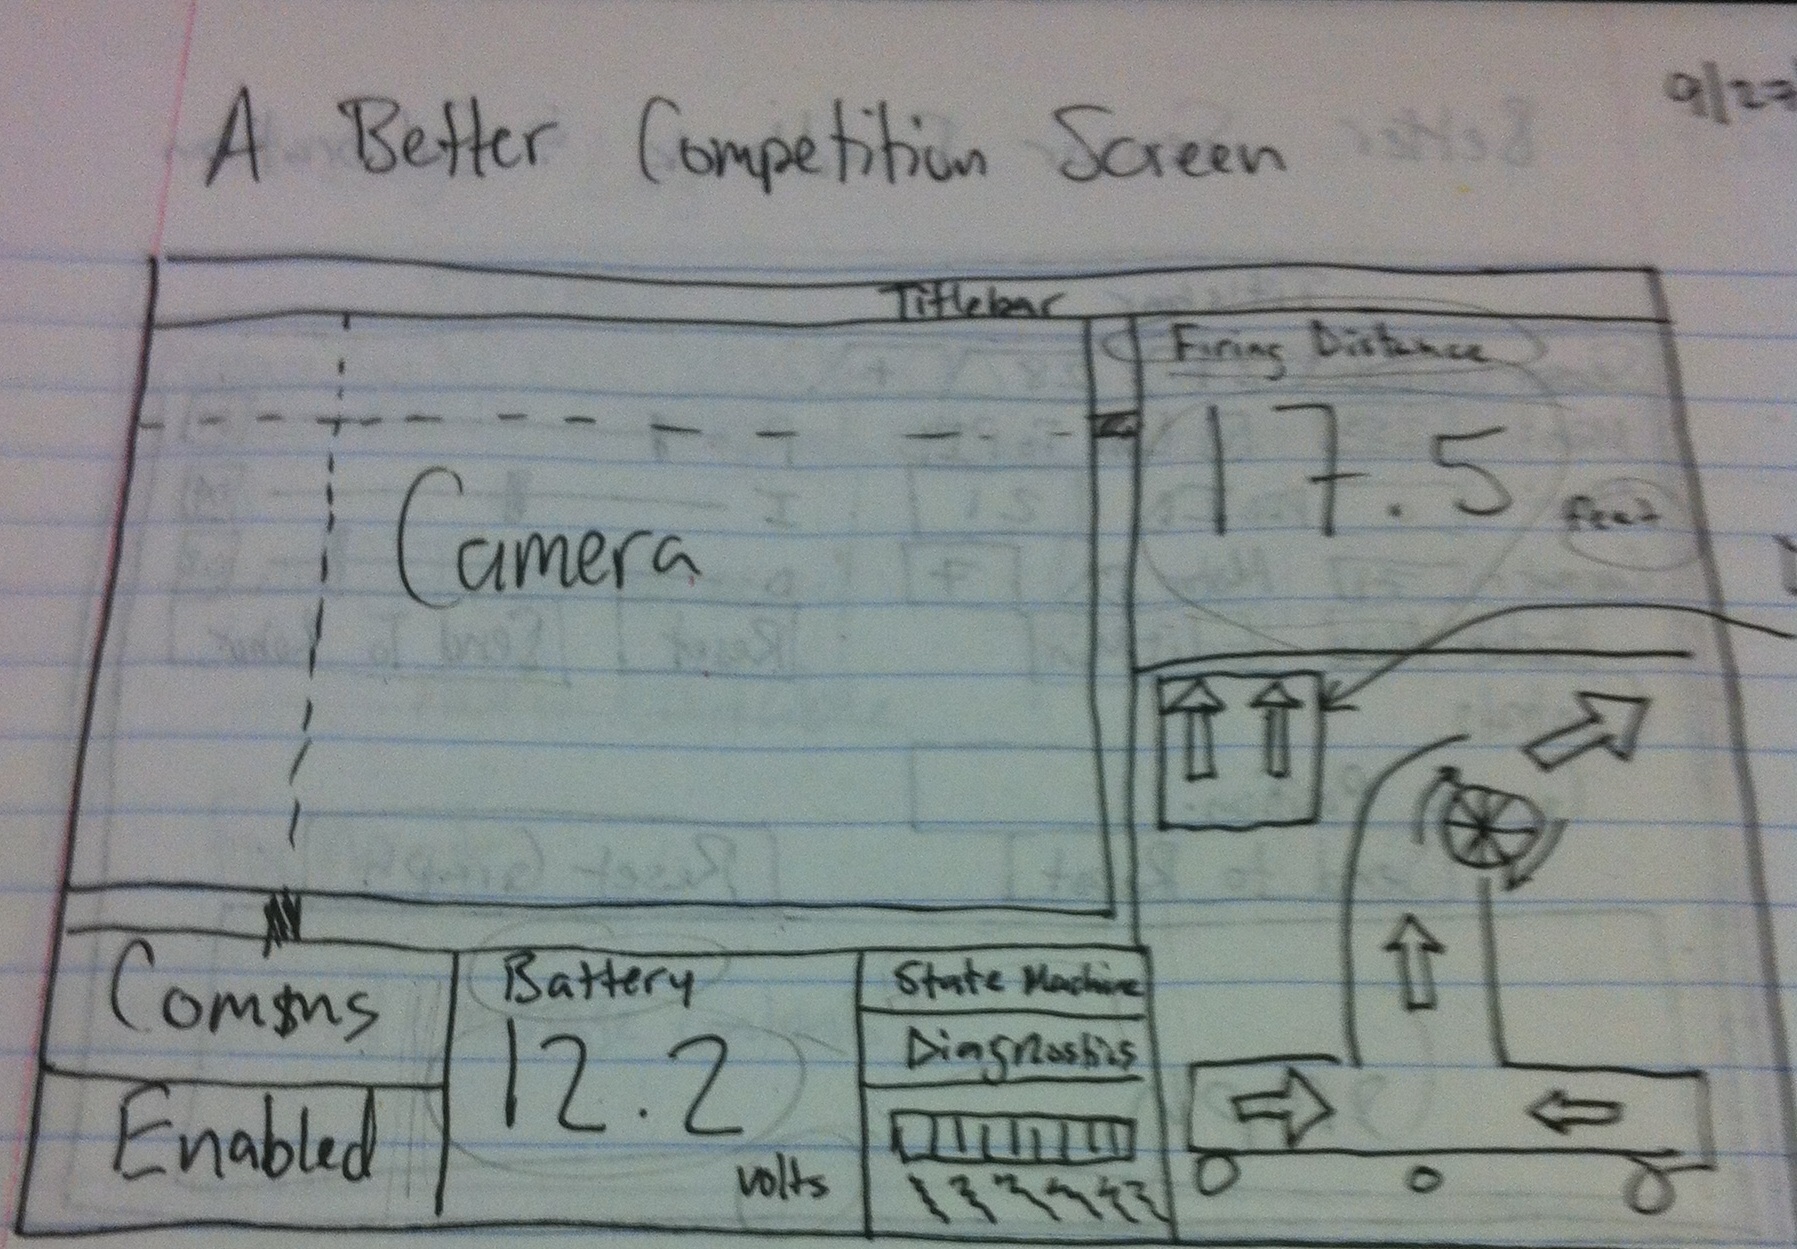 A Better Competition Screen
9/27
Titlebar
Firing Distance
17.5 feet
Camera
Comms
Enabled
Battery
12.2
volts
State Machine
Diagnostics